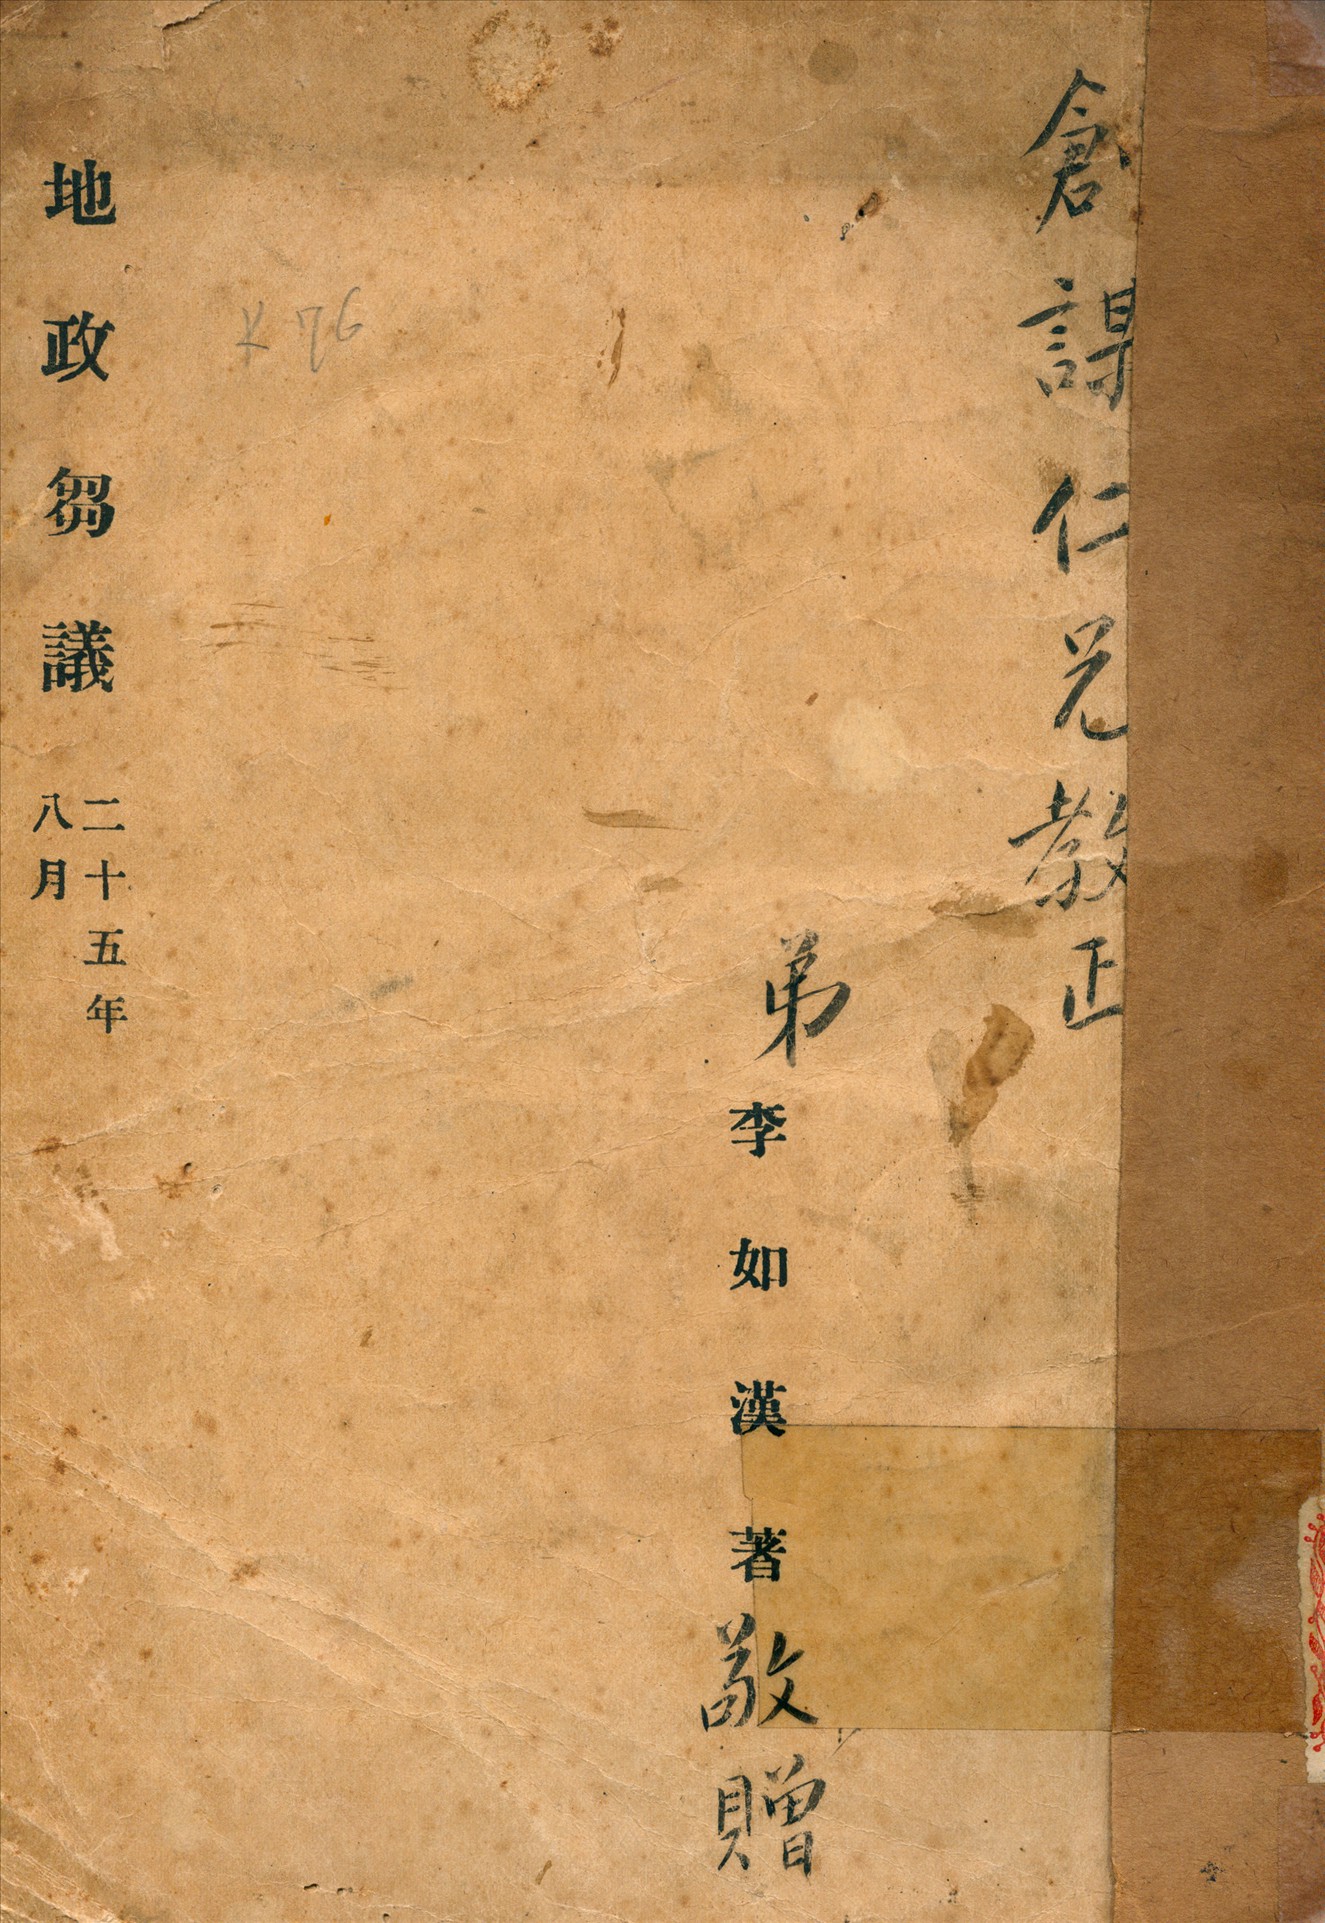 創謀仁兄教正
弟李如漢著敬贈
地政芻議
二十五年
八月